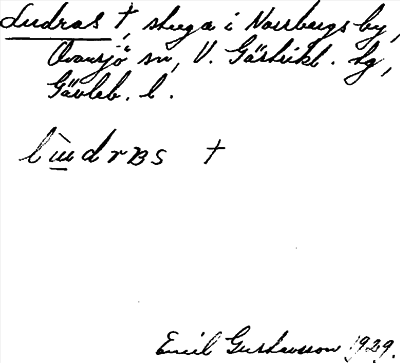 Ludras †, stuga i Norrbergs by,
Ovansjö sn, V. Gästrikl. tg,
Gävleb. l.
lùndrBs †
Emil Gustavsson 1929.